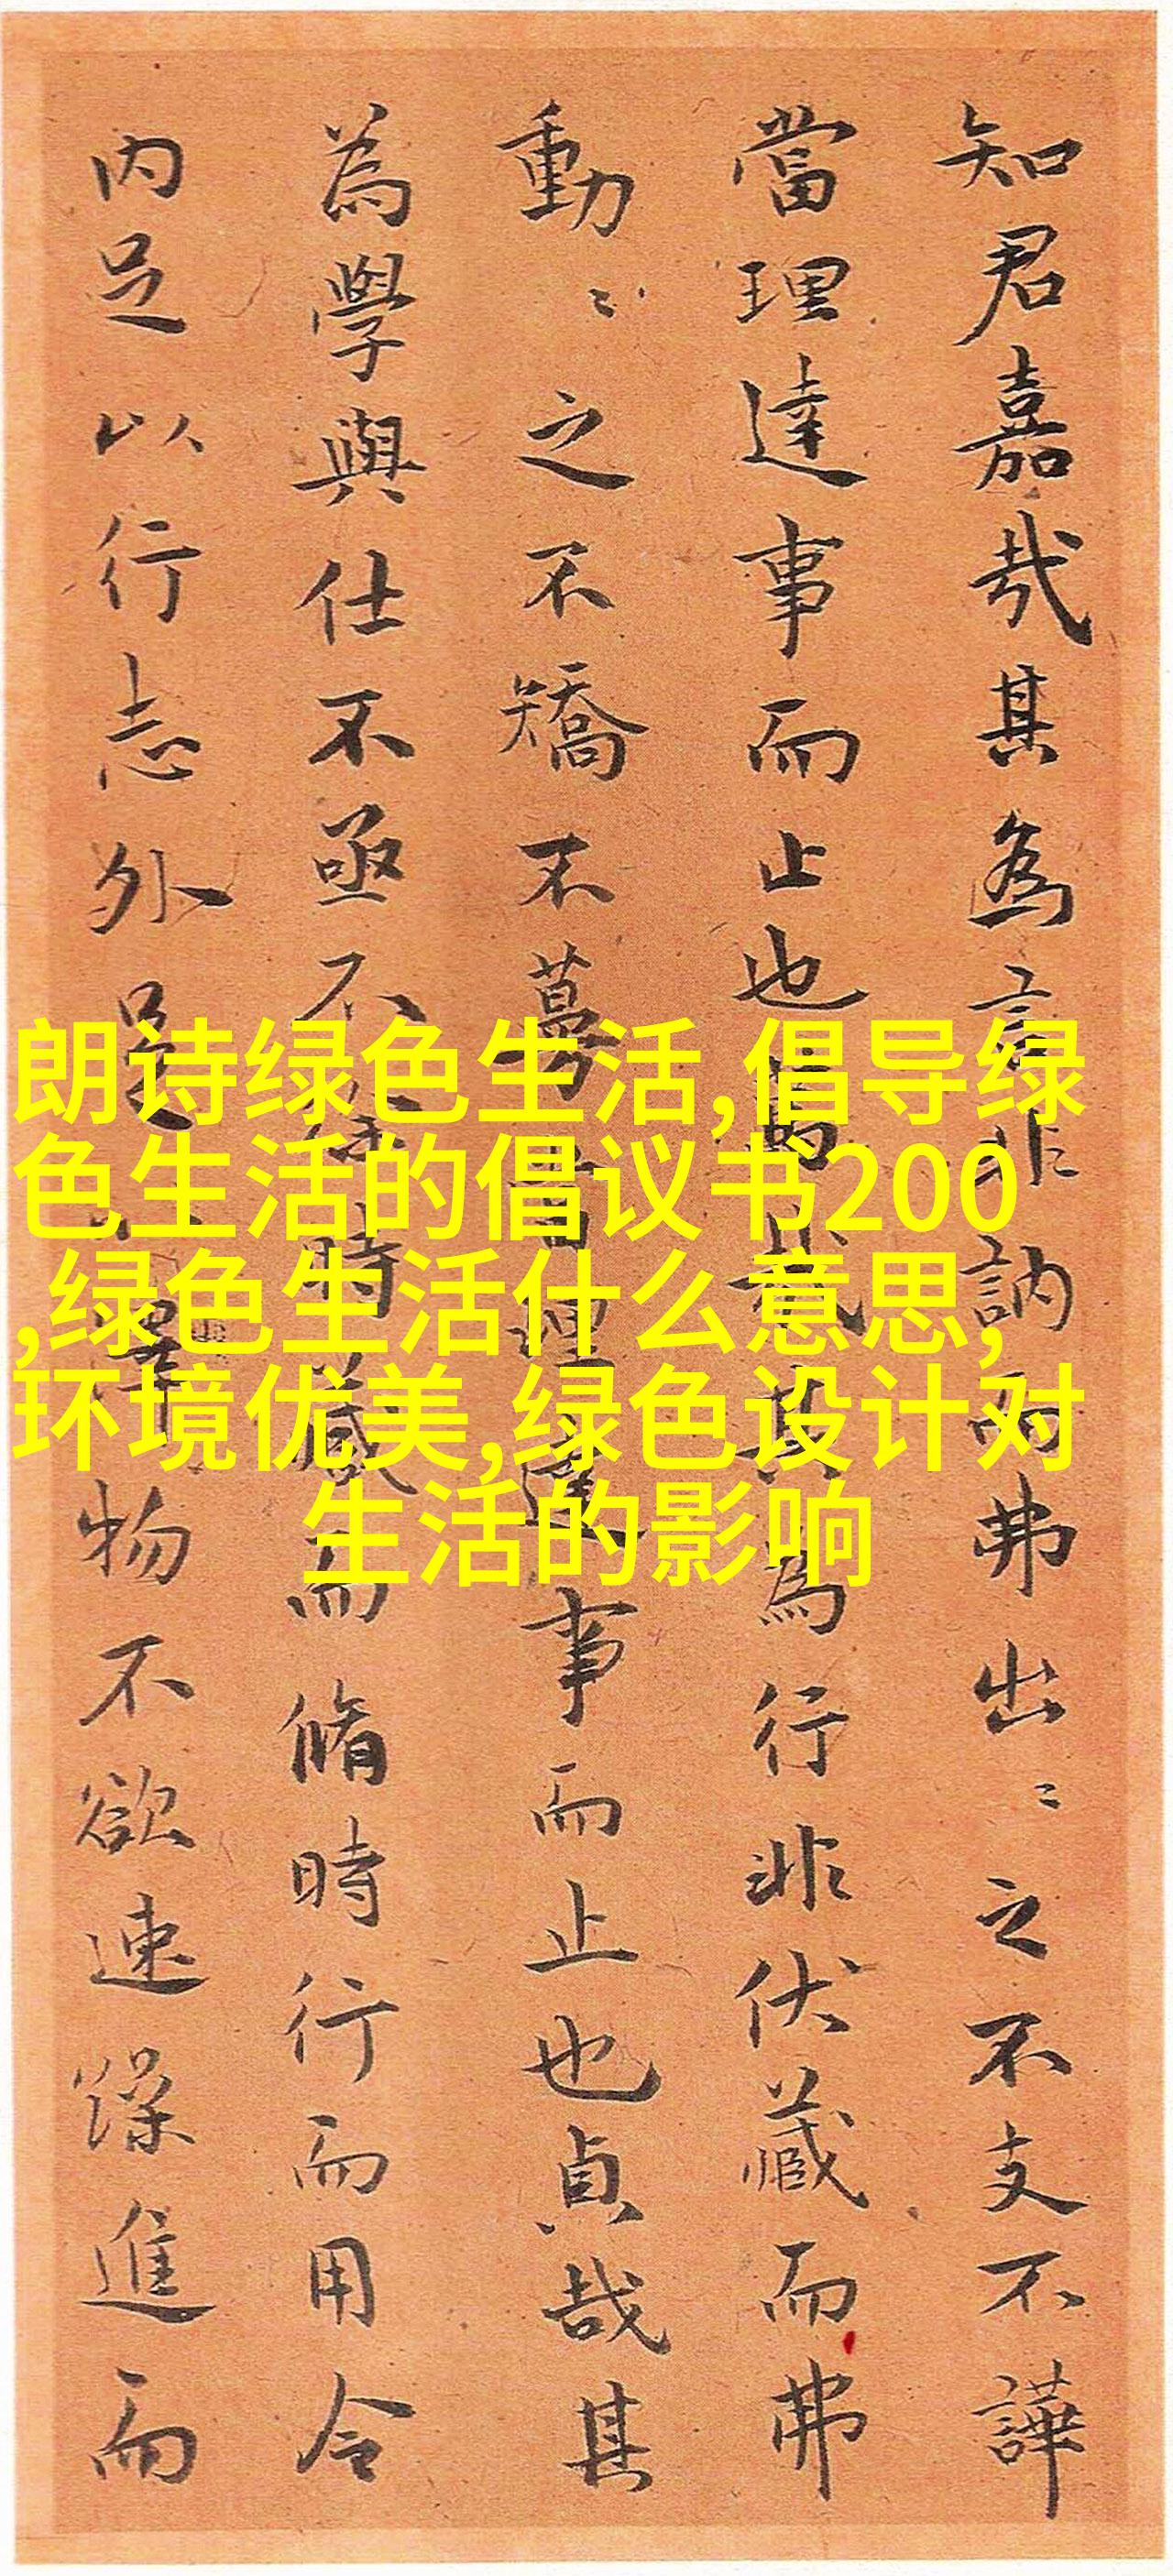 知君嘉哉其為言非訥而弗出〻之不支不譁
當理達事而止也哉其為行非伏藏而弗
動〻之不矯不當理達事而止也貞哉其
為學與仕不亟不徐時藏而脩時行而用令
内足以行志外足以澤物不欲速躁進而
朗诗绿色生活,倡导绿
色生活的倡议书200
,绿色生活什么意思,
环境优美,绿色设计对
生活的影响